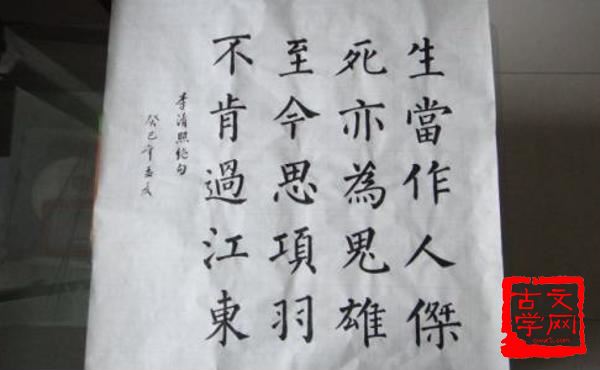 生當作人傑
死亦為鬼雄
至今思項羽
不肯過江東
李清照絕句
癸巳年
古文
学网